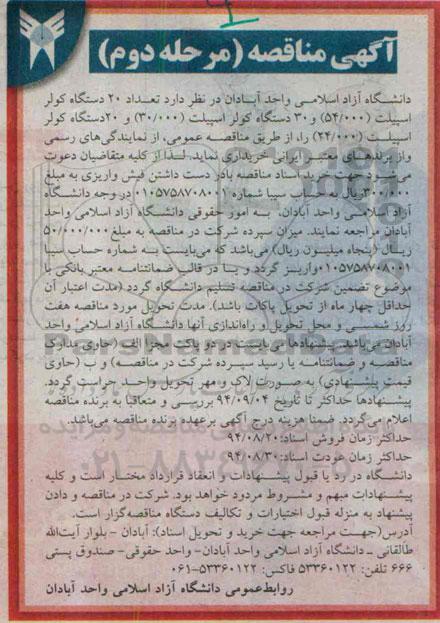 آگهی مناقصه (مرحله دوم)
دانشگاه آزاد اسلامی واحد آبادان در نظر دارد تعداد ۲۰ دستگاه کولر
اسپیلت (۵۴/۰۰۰) و ۳۰ دستگاه کولر اسپیلت (۳۰/۰۰۰) و ۲۰دستگاه کولر
اسپلیت (۲۴/۰۰۰) را، از طریق مناقصه عمومی، از نمایندگی‌های رسمی
واز برندهای معتبر ایرانی خریداری نماید. لذا از کلیه متقاضیان دعوت
می‌شود جهت خرید اسناد مناقصه بادر دست داشتن فیش واریزی به مبلغ
۳۰۰/۰۰۰ریال به حساب سیبا شماره ۰۱۰۵۷۵۸۷۰۸۰۰۱ در وجه دانشگاه
آزاد اسلامی واحد آبادان، به امور حقوقی دانشگاه آزاد اسلامی واحد
آبادان مراجعه نمایند. میزان سپرده شرکت در مناقصه به مبلغ ۵۰/۰۰۰/۰۰۰
ریال (پنجاه میلیون ریال) می‌باشد که می‌بایست به شماره حساب سیبا
۰۱۰۵۷۵۸۷۰۸۰۰۱واریز گردد و یا در قالب ضمانتنامه معتبر بانکی با
موضوع تضمین شرکت در مناقصه تسلیم دانشگاه گردد (مدت اعتبار آن
حداقل چهار ماه از تحویل پاکات باشد). مدت تحویل مورد مناقصه هفت
روز شمسی و محل تحویل و راه‌اندازی آنها دانشگاه آزاد اسلامی واحد
آبادان می‌باشد. پیشنهادها می‌بایست در دو پاکت مجزا الف (حاوی مدارک
مناقصه و ضمانتنامه یا رسید سپرده شرکت در مناقصه) و ب (حاوی
قیمت پیشنهادی) به صورت لاک و مهر تحویل واحد حراست گردد.
پیشنهادها حداکثر تا تاریخ ۹۴/۰۹/۰۴ بررسی و متعاقبا به برنده مناقصه
اعلام می‌گردد. ضمنا هزینه درج آگهی برعهده برنده مناقصه می‌باشد.
حداکثر زمان فروش اسناد: ۹۴/۰۸/۲۰
حداکثر زمان عودت اسناد: ۹۴/۰۸/۳۰
دانشگاه در رد یا قبول پیشنهادات و انعقاد قرارداد مختار است و کلیه
پیشنهادات مبهم و مشروط مردود خواهد بود. شرکت در مناقصه و دادن
پیشنهاد به منزله قبول اختیارات و تکالیف دستگاه مناقصه‌گزار است.
آدرس(جهت مراجعه جهت خرید و تحویل اسناد): آبادان - بلوار آیت‌الله
طالقانی - دانشگاه آزاد اسلامی واحد آبادان- واحد حقوقی- صندوق پستی
۶۶۶ تلفن: ۵۳۳۶۰۱۲۲ فاکس: ۵۳۳۶۰۱۲۲-۰۶۱
روابط‌عمومی دانشگاه آزاد اسلامی - واحد آبادان
ParsNamadData
۰۲۱-۸۸۳۴۹۶۷۰-۵